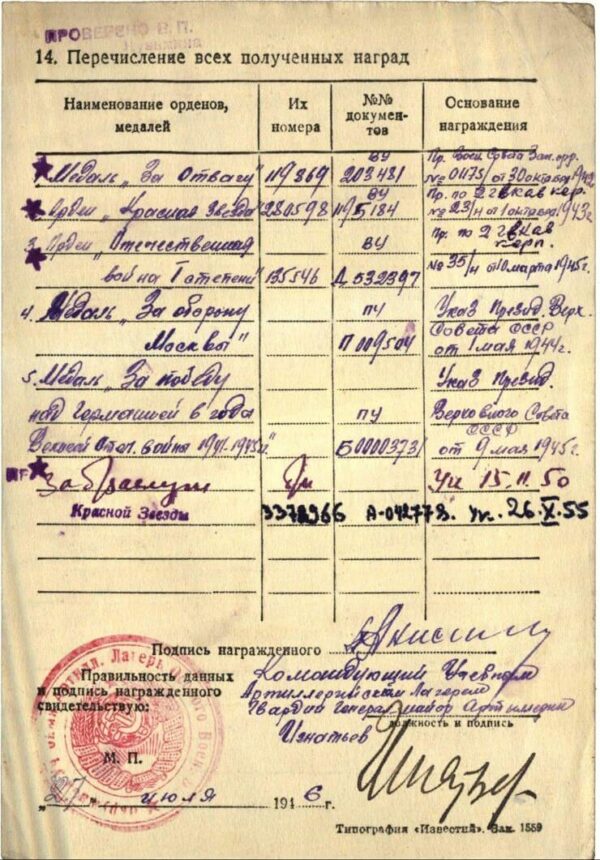 ПРОВЕРЕНО В.П.
14. Перечисление всех полученных наград
Наименование орденов, медалей
Их номера
№№ документов
Основание награждения
Медаль „За Отвагу" 119869 ВУ 203481 Пр. Воен. Совета Зап. фр. № 0475/ от 30 октября 1942
Орден „Красная Звезда" 280598 ВУ 1195184 Пр. по 2 гв кав кор. № 23/н от 1 октября 1943г.
3. Орден „Отечественная ВУ Пр. по 2 гв кав корп.
война I степени" 135546 Д 532397 № 35/н от 10 марта 1945г.
4. Медаль „За оборону ПУ Указ Презид. Верх.
Москвы" П 009504 Совета СССР от 1 мая 1944г.
5. Медаль „За победу Указ Презид.
над Германией в года ПУ Верховного Совета СССР
Великой Отеч. войне 1941-1945г." Б 0000373 от 9 мая 1945г.
За Ук 15.11.50
Красной Звезды 3378966 А-042778. Ук. 26.X.55
Подпись награжденного
Правильность данных
и подпись награжденного
свидетельствую:
Командующий Учебным
Артиллерийским Лагерем
Гвардии Генерал-майор Артиллерии
Игнатьев
должность и подпись
М. П.
„27" июля 1946г.
Типография «Известий». Зак. 1559